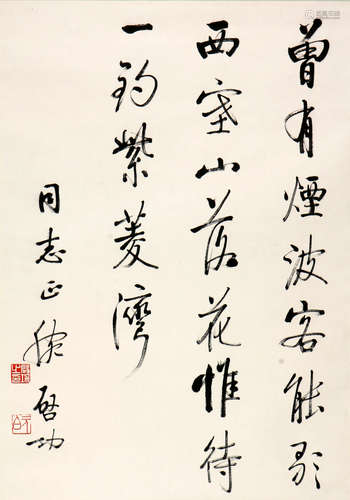 曾有煙波客能歌
西塞山落花惟待
一釣紫菱灣
同志正腕
啟功